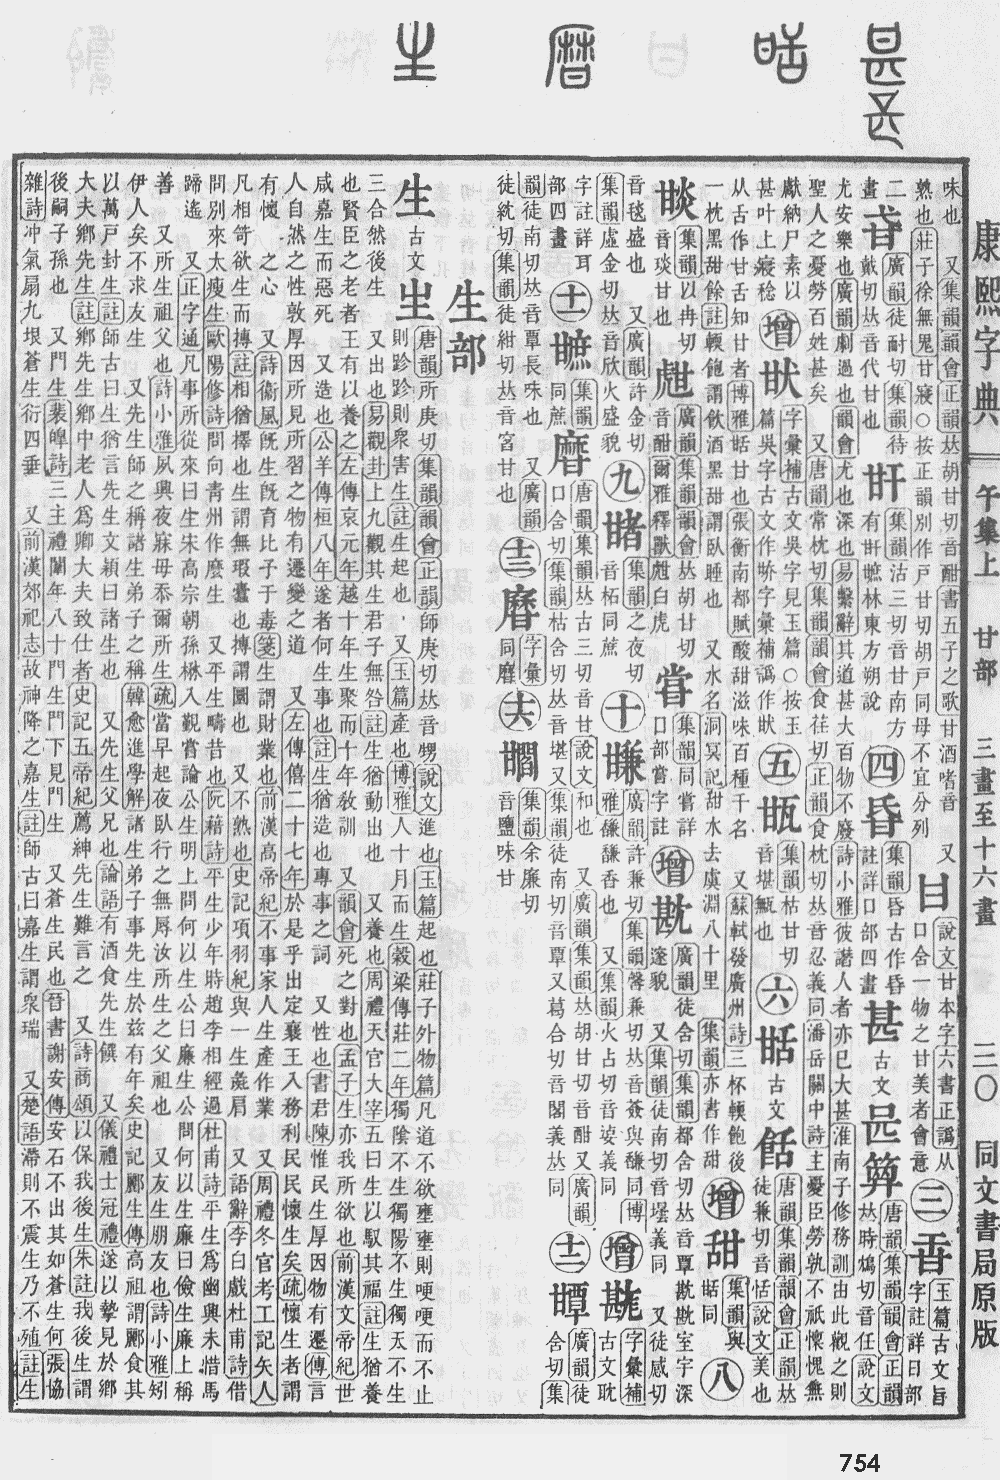 甚 甛 曆 生
康熙字典 午集上 甘部 三畫至十六畫 二〇 同文書局原版
味也 又集韻韻會正韻𠀤胡甘切音酣書五子之歌甘酒嗜音 又
熟也莊子徐無鬼甘寢〇按正韻別作戶甘切胡戶同母不宜分列
甘 說文甘本字六書正譌从
口含一物之甘美者會意
三
玉篇古文旨
字註詳日部
二畫
廣韻徒耐切集韻待
戴切𠀤音代甘也
集韻沽三切音甘南方
有甜林東方朔說
四
集韻昏古作昏
註詳口部四畫
甚 古文
唐韻集韻韻會正韻
𠀤時鴆切音任說文
尤安樂也廣韻劇過也韻會尤也深也易繫辭其道甚大百物不廢詩小雅彼譖人者亦已大甚淮南子修務訓由此觀之則
聖人之憂勞百姓甚矣 又唐韻常枕切集韻韻會食荏切正韻食枕切𠀤音忍義同潘岳關中詩主憂臣勞孰不祇懍愧無
獻納尸素以
甚叶上寢稔
增
字彙補古文吳字見玉篇〇按玉
篇吳字古文作㕦字彙補譌作
五
集韻枯甘切
音堪
六
甛 古文
唐韻集韻韻會正韻𠀤
徒兼切音恬說文美也
从古作甘舌知甘者博雅甛甘也張衡南都賦酸甜滋味百種千名 又蘇軾發廣州詩三杯輭飽後
一枕黑甜餘註輭飽謂飲酒黑甜謂臥睡也 又水名洞冥記甜水去虞淵八十里 集韻亦書作甜
增 甜 集韻與
甛同
八
集韻以冉切
音琰甘也
廣韻集韻韻會𠀤胡甘切
音酣爾雅釋獸甝白虎
嘗 集韻同嘗詳
口部嘗字註
增
廣韻徒含切集韻都含切𠀤音覃㽎㽎室宇深
邃貌 又集韻徒南切音墰義同 又徒感切
音毯盛也 又廣韻許金切
集韻虛金切𠀤音歆火盛貌
九
集韻之夜切
音柘同蔗
十
廣韻許兼切集韻馨兼切𠀤音薟與馦同博
雅馦馦香也 又集韻火占切音㛍義同
增
字彙補
古文耽
字註詳耳
部四畫
十一
集韻
同蔗
唐韻集韻𠀤古三切音甘說文和也 又廣韻集韻𠀤胡甘切音酣又廣韻
口含切集韻枯含切𠀤音堪又集韻徒南切音覃又葛合切音閤義𠀤同
十二
廣韻徒
含切集
韻徒南切𠀤音覃長味也 又廣韻
徒紞切集韻徒紺切𠀤音窞甘也
十三
字彙
同
十六
集韻余廉切
音鹽味甘
生部
生 古文
唐韻所庚切集韻韻會正韻師庚切𠀤音甥說文進也玉篇起也莊子外物篇凡道不欲壅壅則哽哽而不止
則跈跈則衆害生註生起也 又玉篇產也博雅人十月而生穀梁傳莊二年獨隂不生獨陽不生獨天不生
三合然後生 又出也易觀卦上九觀其生君子無咎註生猶動出也 又養也周禮天官大宰五曰生以馭其福註生猶養
也賢臣之老者王有以養之左傳哀元年越十年生聚而十年敎訓 又韻會死之對也孟子生亦我所欲也前漢文帝紀世
咸嘉生而惡死 又造也公羊傳桓八年遂者何生事也註生猶造也專事之詞 又性也書君陳惟民生厚因物有遷傳言
人自然之性敦厚因所見所習之物有遷變之道 又左傳僖二十七年於是乎出定襄王入務利民民懷生矣疏懷生者謂
有懷生之心 又詩衞風旣生旣育比子于毒箋生謂財業也前漢高帝紀不事家人生產作業 又周禮冬官考工記矢人
凡相笴欲生而摶註相猶擇也生謂無瑕蠹也摶謂圜也 又不熟也史記項羽紀與一生彘肩 又語辭李白戲杜甫詩借
問別來太瘦生歐陽修詩問向青州作麽生 又平生疇昔也阮籍詩平生少年時趙李相經過杜甫詩平生爲幽興未惜馬
蹄遙 又正字通凡事所從來曰生宋高宗朝孫楙入覲嘗論公生明上問何以生公曰廉生公問何以生廉曰儉生廉上稱
善 又所生祖父也詩小雅夙興夜寐毋忝爾所生疏當早起夜臥行之無辱汝所生之父祖也 又友生朋友也詩小雅矧
伊人矣不求友生 又先生師之稱諸生弟子之稱韓愈進學解諸生弟子事先生於兹有年矣史記酈生傳高祖謂酈食其
以萬戸封生註師古曰生猶言先生文穎曰諸生也 又先生父兄也論語有酒食先生饌 又儀禮士冠禮遂以摯見於鄉
大夫鄉先生註鄉先生鄉中老人爲卿大夫致仕者史記五帝紀薦紳先生難言之 又詩商頌以保我後生朱註我後生謂
後嗣子孫也 又門生裴皡詩三主禮闈年八十門生門下見門生 又蒼生民也晉書謝安傳安石不出其如蒼生何張協
雜詩沖氣扇九垠蒼生衍四垂 又前漢郊祀志故神降之嘉生註師古曰嘉生謂衆瑞 又楚語滯則不震生乃不殖註生
754